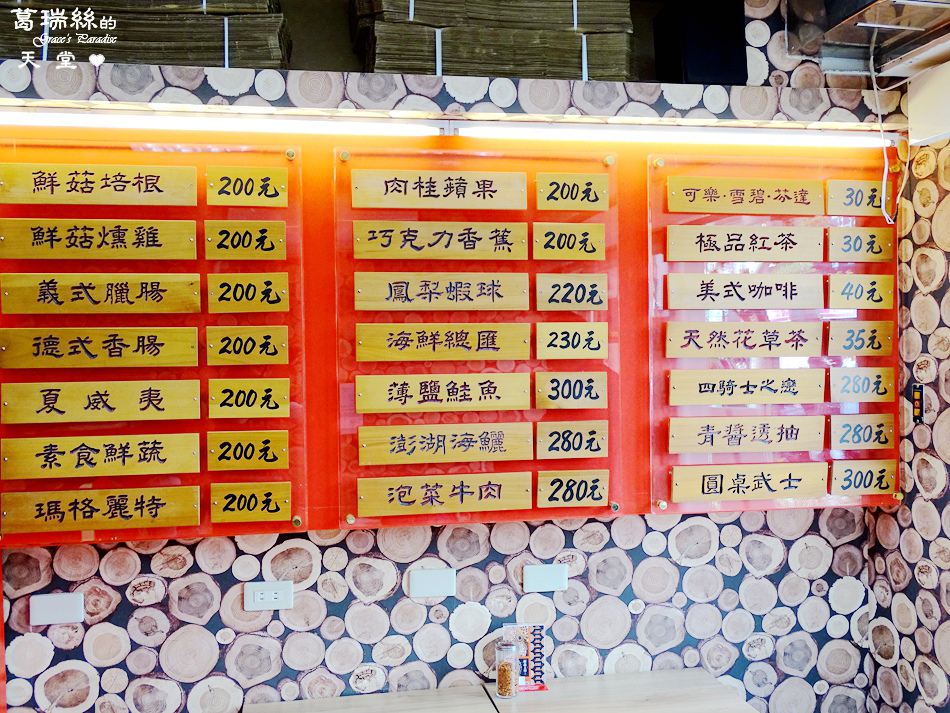 葛瑞絲的
Grace's Paradise
天堂
鮮菇培根 200元
鮮菇燻雞 200元
義式臘腸 200元
德式香腸 200元
夏威夷 200元
素食鮮蔬 200元
瑪格麗特 200元
肉桂蘋果 200元
巧克力香蕉 200元
鳳梨蝦球 220元
海鮮總匯 230元
薄鹽鮭魚 300元
澎湖海鱺 280元
泡菜牛肉 280元
可樂·雪碧·芬達 30元
極品紅茶 30元
美式咖啡 40元
天然花草茶 35元
四騎士之戀 280元
青醬透抽 280元
圓桌武士 300元